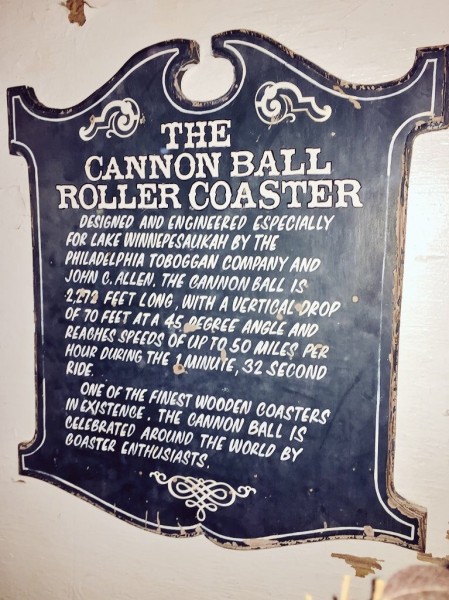 THE
CANNON BALL
ROLLER COASTER
DESIGNED AND ENGINEERED ESPECIALLY
FOR LAKE WINNEPESAUKAH BY THE
PHILADELPHIA TOBOGGAN COMPANY AND
JOHN C. ALLEN, THE CANNON BALL IS
2,272 FEET LONG, WITH A VERTICAL DROP
OF 70 FEET AT A 45 DEGREE ANGLE AND
REACHES SPEEDS OF UP TO 50 MILES PER
HOUR DURING THE 1 MINUTE, 32 SECOND
RIDE.
ONE OF THE FINEST WOODEN COASTERS
IN EXISTENCE, THE CANNON BALL IS
CELEBRATED AROUND THE WORLD BY
COASTER ENTHUSIASTS.